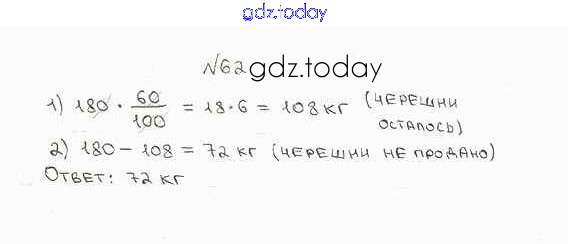 gdz.today
№62 gdz.today
1) 180 · 60/100 = 18·6 = 108 кг (ЧЕРЕШНИ
ОСТАЛОСЬ)
2) 180 - 108 = 72 кг (ЧЕРЕШНИ НЕ ПРОДАНО)
ОТВЕТ: 72 кг